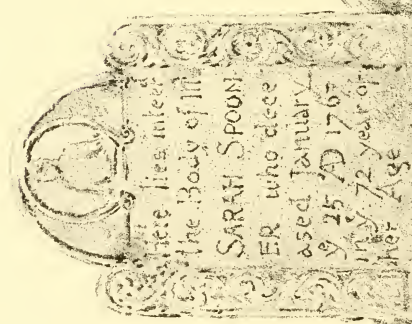 Here lies intered
the Body of M
SARAH SPOON
ER who dece
ased January
y 25 AD 1767
in y 72 year of
her Age